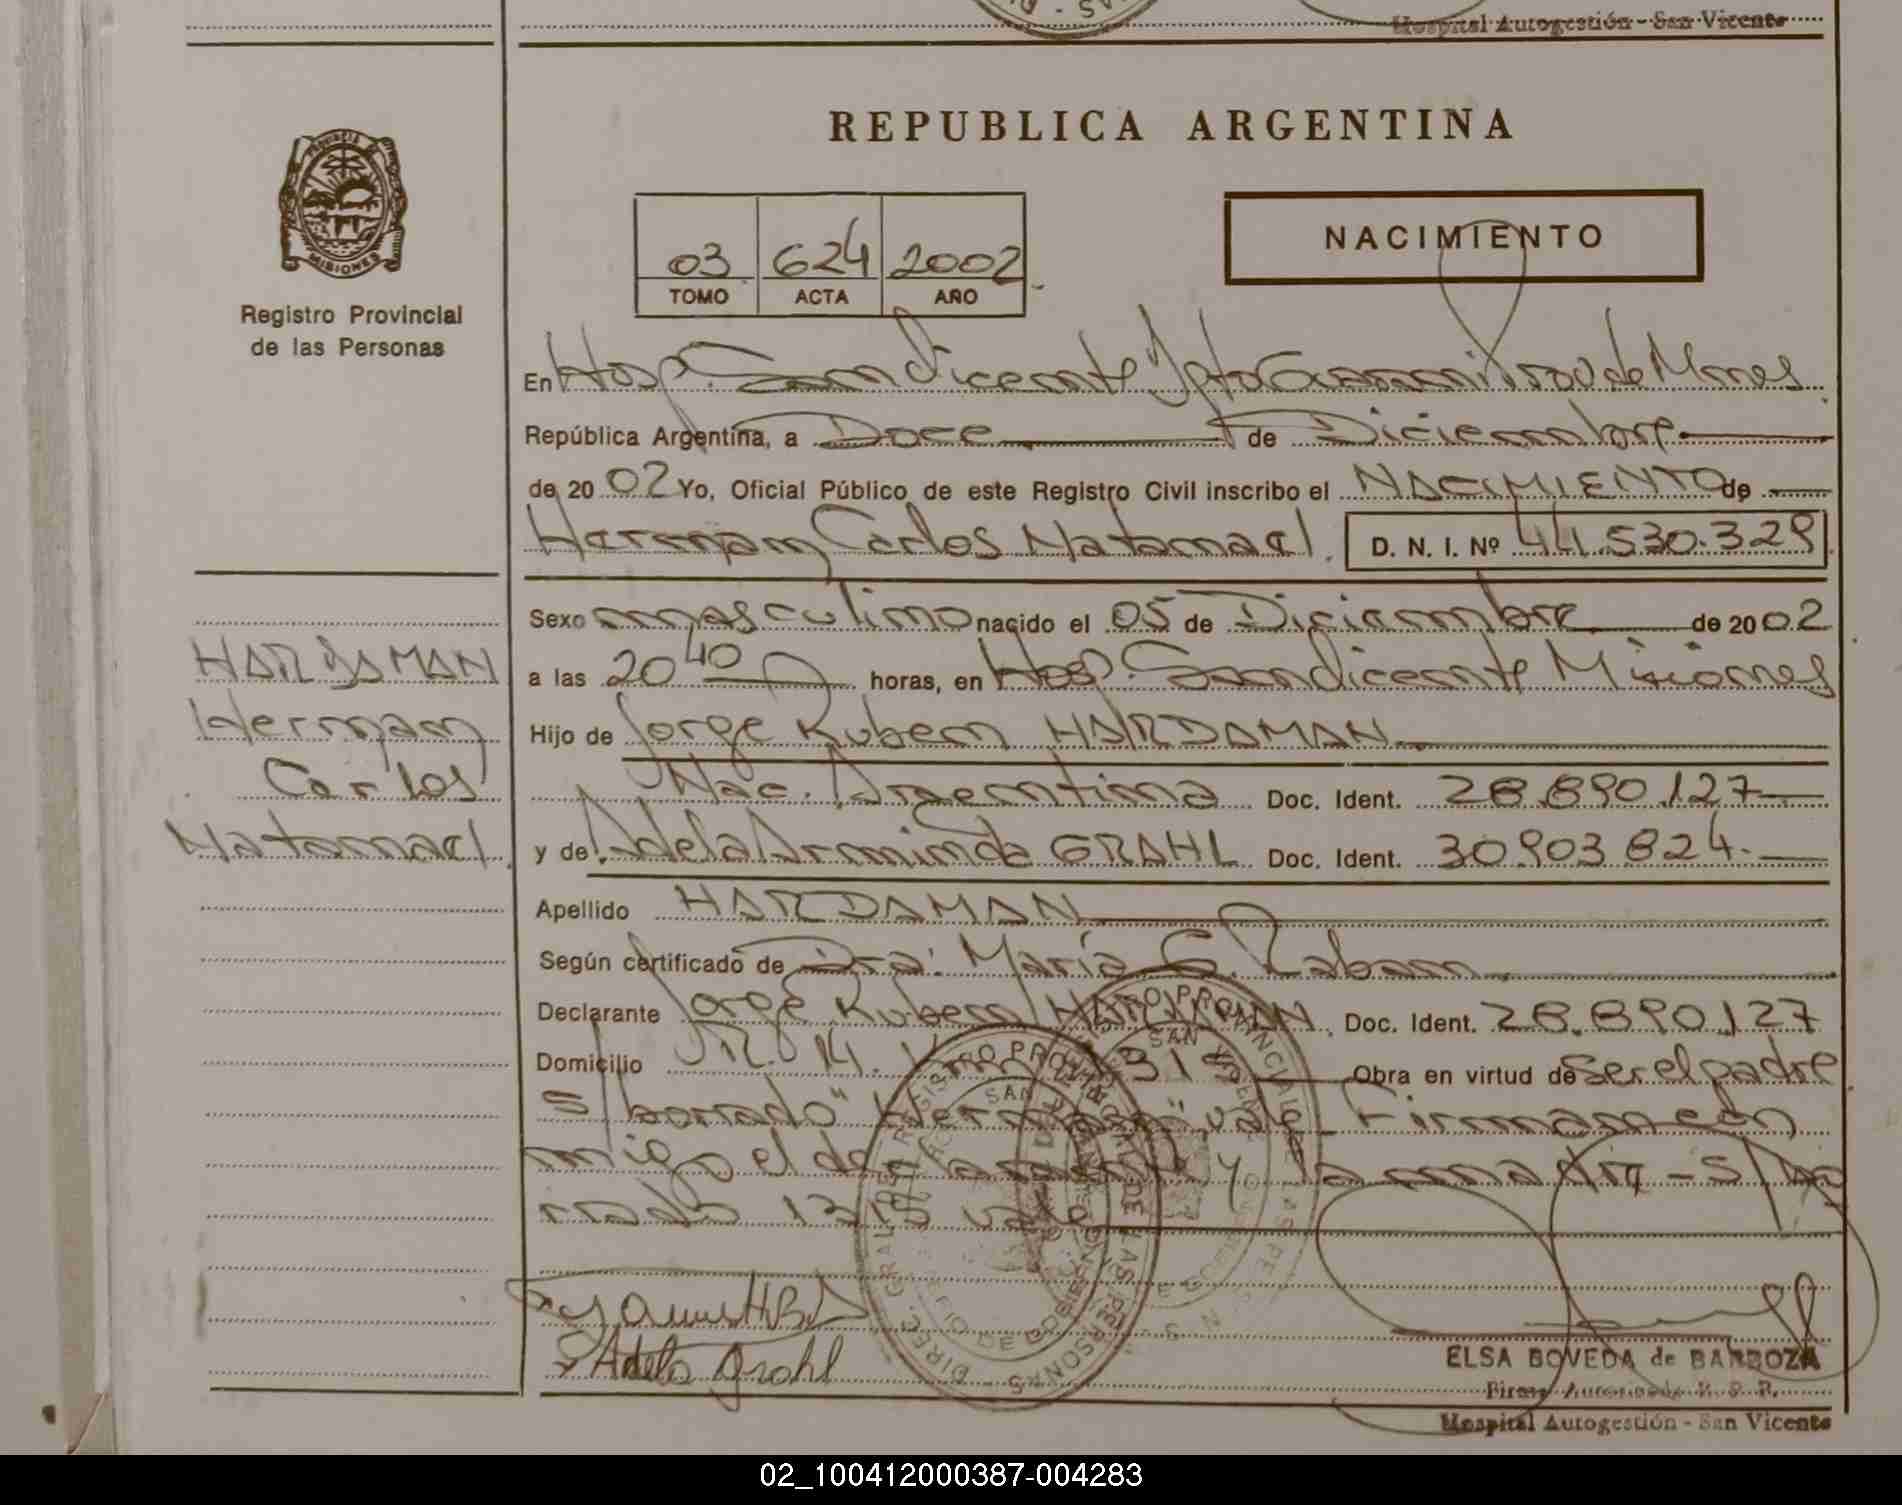 Hospital Autogestión - San Vicente
REPUBLICA ARGENTINA
PROVINCIA DE MISIONES
Registro Provincial
de las Personas
03 624 2002
TOMO ACTA AÑO
NACIMIENTO
En Hosp. San Vicente Dpto Guaraní Prov de Mnes
República Argentina, a Doce de Diciembre
de 2002 Yo, Oficial Público de este Registro Civil inscribo el NACIMIENTO de
Hernan Carlos Natanael. D. N. I. Nº 44.530.329
Sexo masculino nacido el 05 de Diciembre de 2002
a las 20 40 horas, en Hosp. San Vicente Misiones
Hijo de Jorge Ruben HARDAMAN
Nac. Argentina Doc. Ident. 28.890.127
y de Adela Arminda GRAHL Doc. Ident. 30.903.824.
Apellido HARDAMAN
Según certificado de Dra. María G.
Declarante Jorge Ruben HARDAMAN. Doc. Ident. 28.890.127
Domicilio R. N. 14. Km 1313 Obra en virtud de Ser el padre
S/borrado "Hernan" vale Firman con
migo el declarante y la madre - S/bo
rrado 1313 vale
HARDAMAN
Hernan
Carlos
Natanael.
Adela Grahl
ELSA BOVEDA de BARBOZA
Firma Autorizada R. P. P.
Hospital Autogestión - San Vicente
02_100412000387-004283